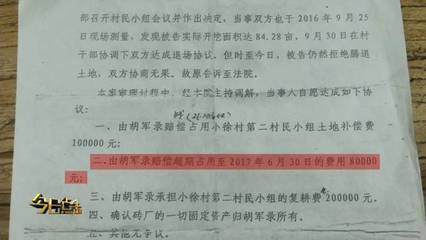 部召开村民小组会议并作出决定。当事双方也于 2016 年 9 月 25
日现场测量，发现被告实际开挖面积达 84.28 亩，9 月 30 日在村
干部协调下双方达成退场协议。但时至今日，被告仍然拒绝腾退
土地，双方协商无果。故原告诉至法院。
本案审理过程中，经本院主持调解，当事人自愿达成如下协
议：
一、由胡军录赔偿占用小徐村第二村民小组土地补偿费
100000 元；
二、由胡军录赔偿超期占用至 2017 年 6 月 30 日的费用 80000
元；
三、由胡军录承担小徐村第二村民小组的复耕费 200000 元。
四、确认砖厂的一切固定资产归胡军录所有。
五、其他无争议。
今日